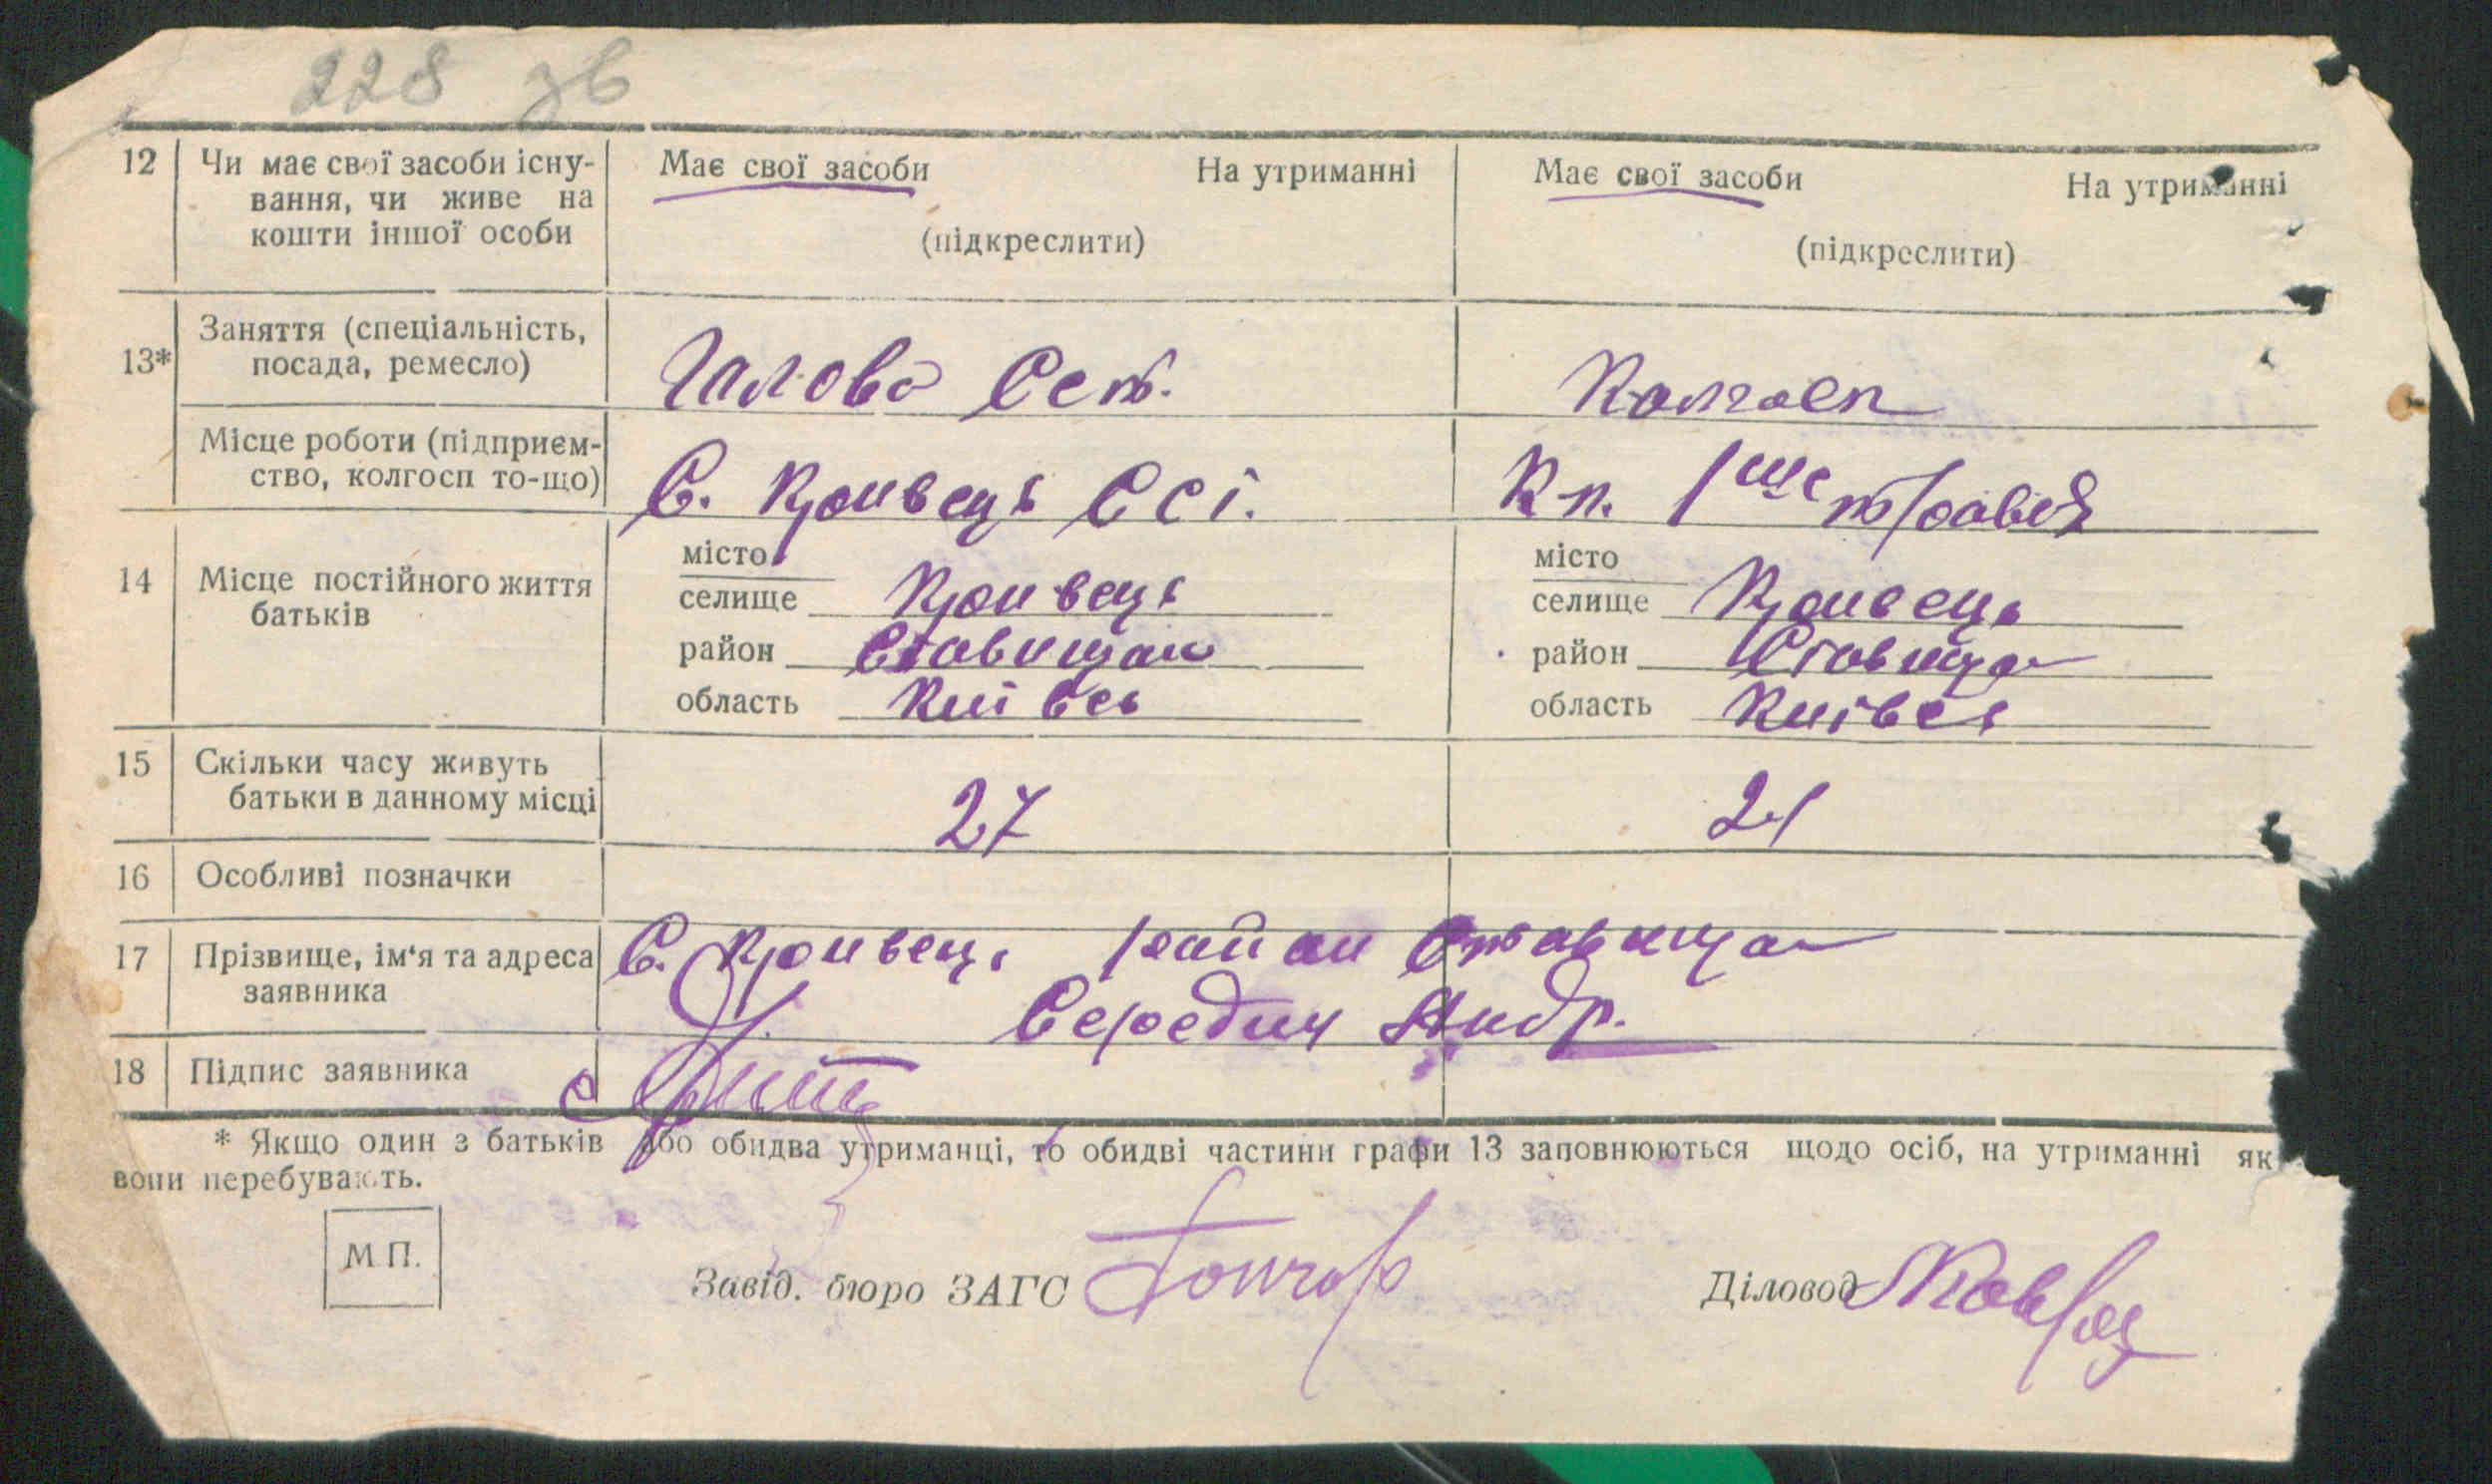 228 зв
12 Чи має свої засоби існу- Має свої засоби На утриманні Має свої засоби На утриманні
вання, чи живе на
кошти іншої особи (підкреслити) (підкреслити)
13* Заняття (спеціальність,
посада, ремесло) Голова Колгосп
Місце роботи (підприєм-
ство, колгосп то-що) С. Кривець Кп. 1ше травня
14 Місце постійного життя
батьків
місто місто
селище Кривець селище Кривець
район Ставищан район Ставища
область Київсь область Київсь
15 Скільки часу живуть
батьки в данному місці 27 21
16 Особливі позначки
17 Прізвище, ім'я та адреса С. Кривець район Ставища
заявника Середич Андр.
18 Підпис заявника
* Якщо один з батьків або обидва утриманці, то обидві частини графи 13 заповнюються щодо осіб, на утриманні як
вони перебувають.
М.П.
Завід. бюро ЗАГС Гончар Діловод